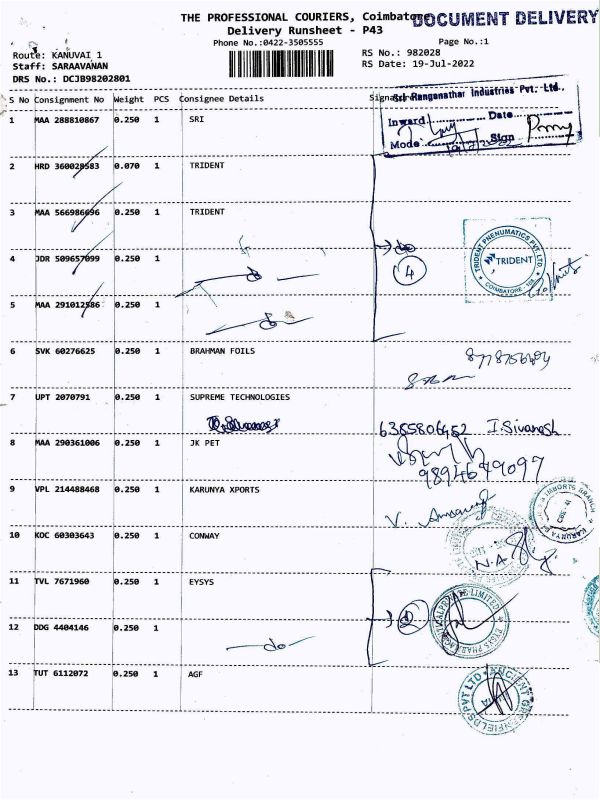 THE PROFESSIONAL COURIERS, Coimbatore
DOCUMENT DELIVERY
Delivery Runsheet - P43
Phone No.:0422-3505555
Page No.:1
Route: KANUVAI 1
RS No.: 982028
Staff: SARAAVANAN
RS Date: 19-Jul-2022
DRS No.: DCJB98202801
S No Consignment No Weight PCS Consignee Details
Sri Ranganathar Industries Pvt. Ltd.,
Inward Date
Mode Sign
1 MAA 288810867 0.250 1 SRI
2 HRD 360028583 0.070 1 TRIDENT
3 MAA 566986696 0.250 1 TRIDENT
4 JDR 509657099 0.250 1 do
TRIDENT PNEUMATICS PVT LTD
TRIDENT
COIMBATORE
4
5 MAA 291012586 0.250 1 do
6 SVK 60276625 0.250 1 BRAHMAN FOILS
7 UPT 2070791 0.250 1 SUPREME TECHNOLOGIES
6385806452 I.Sivanesh
8 MAA 290361006 0.250 1 JK PET
9894679097
9 VPL 214488468 0.250 1 KARUNYA XPORTS
V.
10 KOC 60303643 0.250 1 CONWAY
N.A
11 TVL 7671960 0.250 1 EYSYS
12 DDG 4404146 0.250 1
do
13 TUT 6112072 0.250 1 AGF